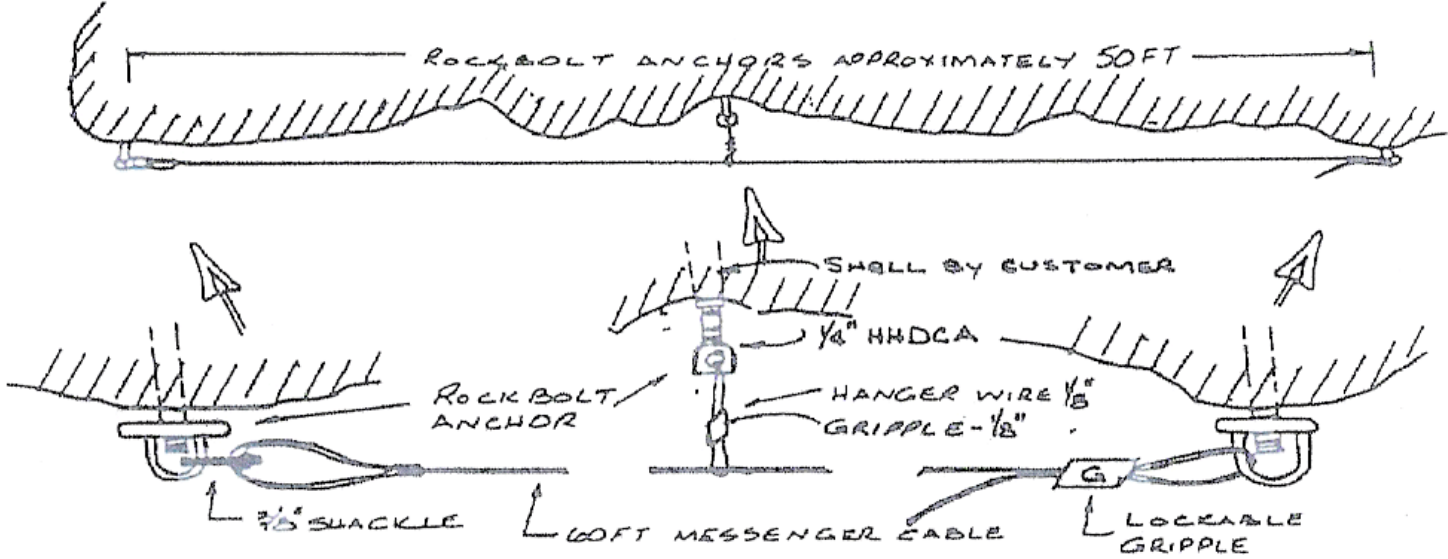 ROCKBOLT ANCHORS APPROXIMATELY 50FT
SHELL BY CUSTOMER
1/4" HHDCA
ROCKBOLT
ANCHOR
HANGER WIRE 1/8"
GRIPPLE-1/8"
G
SHACKLE
60FT MESSENGER CABLE
LOCKABLE
GRIPPLE